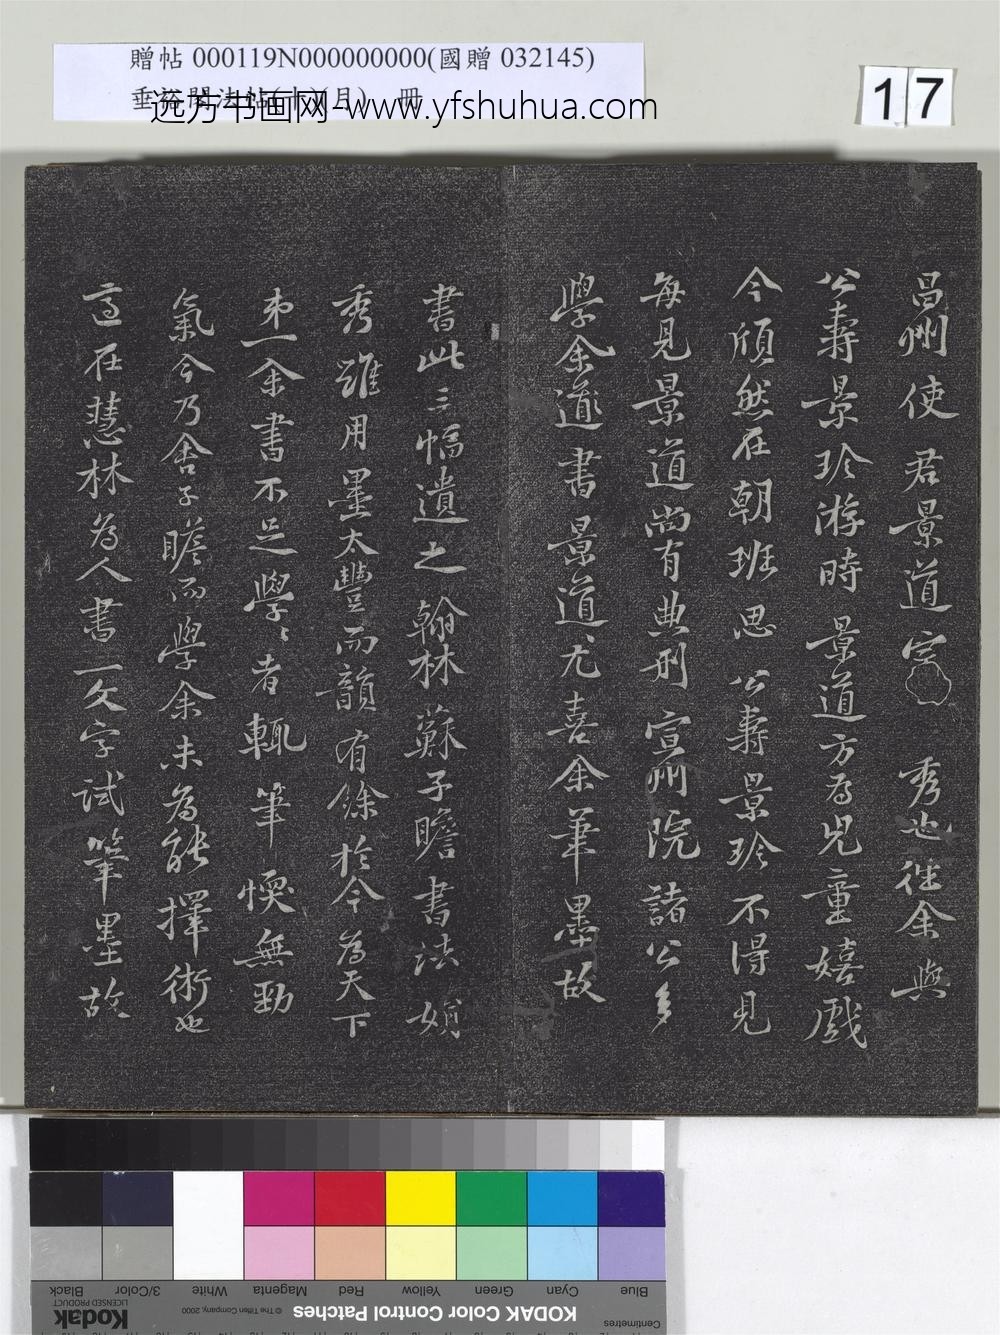 贈帖 000119N000000000(國贈 032145)
远方书画网-www.yfshuhua.com
17
昌州使君景道宗秀也往余與
公壽景珍游時景道方為兒童嬉戲
今頎然在朝班思公壽景珍不得見
每見景道尚有典刑宣州院諸公多
學余書景道尤喜余筆墨故
書此三幅遺之翰林蘇子瞻書法娟
秀雖用墨太豐而韻有餘於今為天下
第一余書不足學學者輒筆愞無勁
氣今乃舍子瞻而學余未為能擇術也
適在慧林為人書一文字試筆墨故
Black
3/Color
White
Magenta
Red
Yellow
Green
Cyan
Blue
Kodak
LICENSED PRODUCT
© The Tiffen Company, 2000
KODAK Color Control Patches
Centimetres